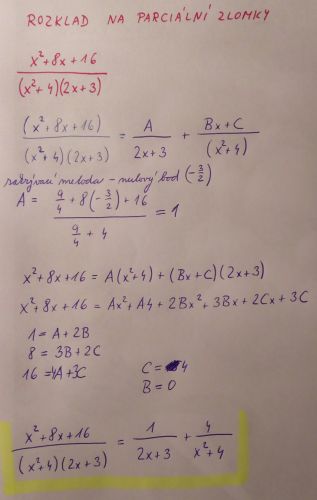 ROZKLAD NA PARCIÁLNÍ ZLOMKY
x²+8x+16
(x²+4)(2x+3)
(x²+8x+16) / (x²+4)(2x+3) = A / 2x+3 + Bx+C / (x²+4)
zakrývací metoda - nulový bod (-3/2)
A = 9/4 + 8(-3/2) + 16 / 9/4 + 4 = 1
x²+8x+16 = A(x²+4) + (Bx+C)(2x+3)
x²+8x+16 = Ax²+A4+2Bx²+3Bx+2Cx+3C
1 = A+2B
8 = 3B+2C
16 = 4A+3C C = 4
B = 0
x²+8x+16 / (x²+4)(2x+3) = 1 / 2x+3 + 4 / x²+4